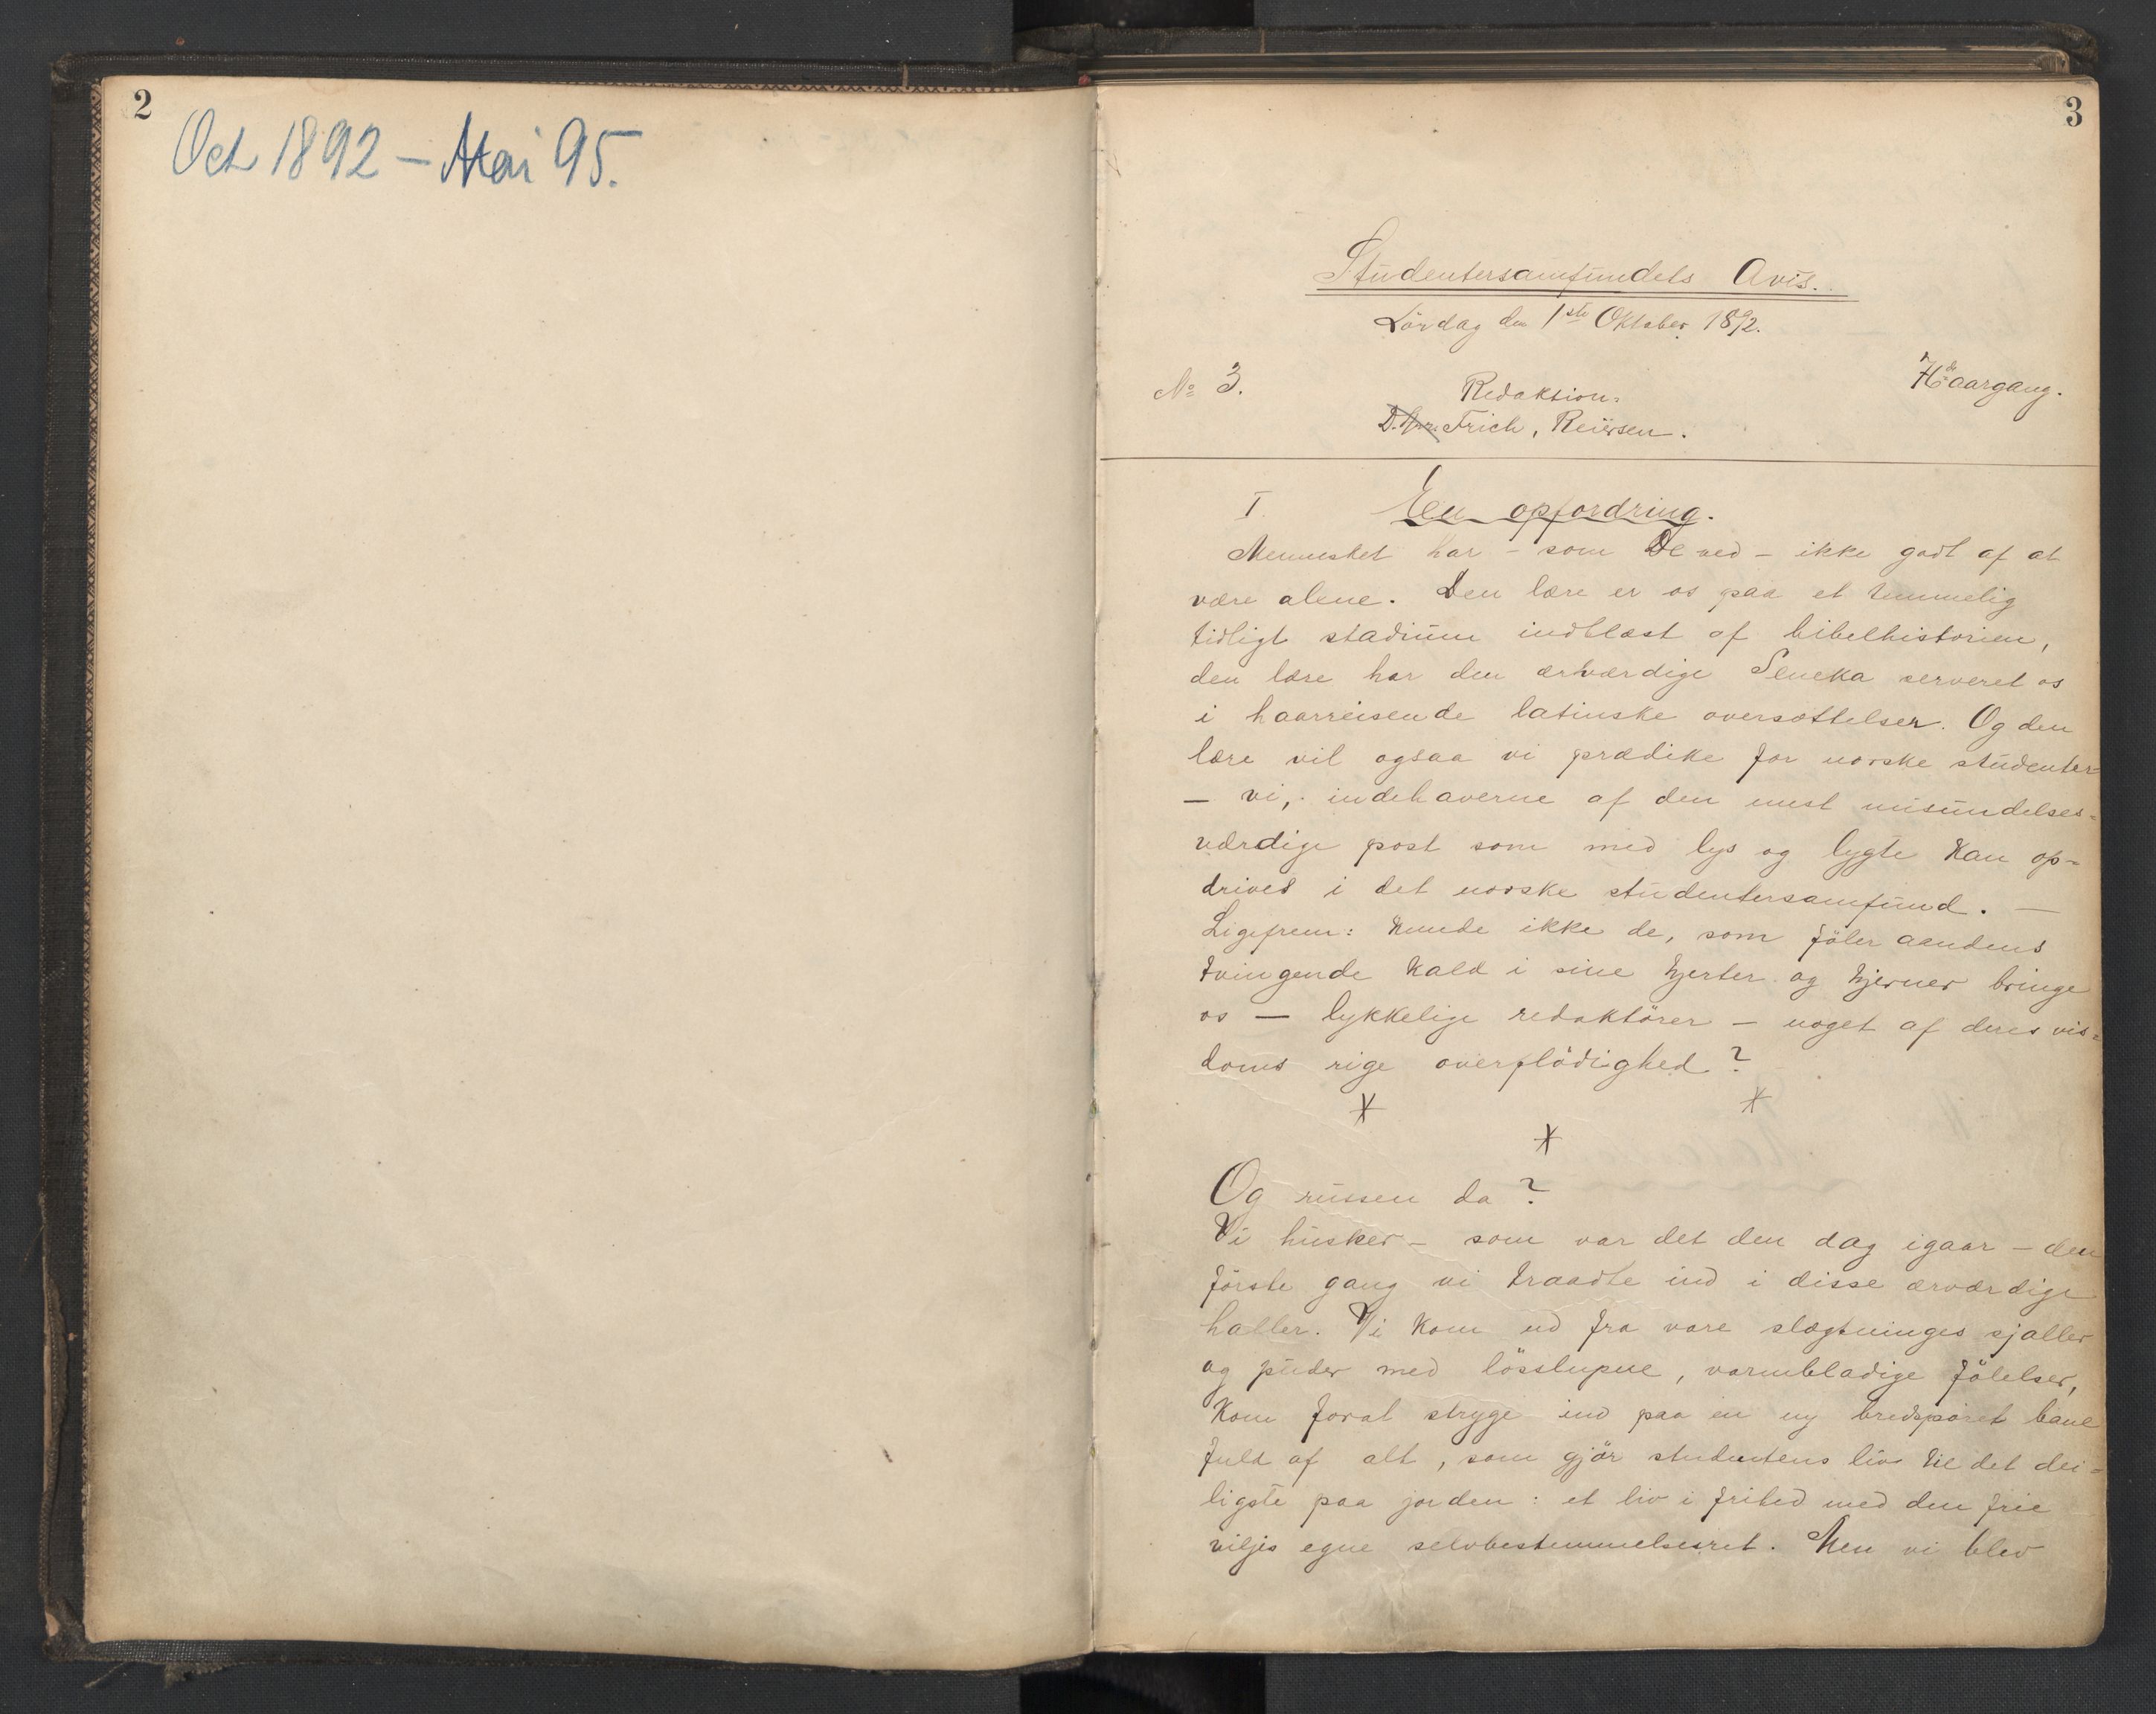 2
Oct 1892 – Mai 95.
3
Studentersamfundets Avis.
Lördag den 1ste Oktober 1892.
No 3.
Redaktion:
D.Hrr. Frich, Reiersen.
aargang.
I
En opfordring.
Mennesket har – som De ved – ikke godt af at
være alene. Den lære er os paa et temmelig
tidligt stadium indblæst af bibelhistorien,
den lære har den ærværdige Seneka serveret os
i haarreisende latinske oversættelser. Og den
lære vil ogsaa vi prædike for norske studenter
– vi, indehaverne af den mest misundelses-
værdige post som med lys og lygte kan op-
drives i det norske studentersamfund. —
Ligefrem: kunde ikke de, som föler aandens
tvingende kald i sine hjerter og hjerner bringe
os — lykkelige redaktörer – noget af deres vis-
doms rige overflödighed?
* * *
Og russen da?
Vi husker – som var det den dag igaar – den
förste gang vi traadte ind i disse ærværdige
haller. Vi kom ud fra vore slægtninges sjaller
og puder med lösslupne, varmblodige fölelser,
kom forat stryge ind paa en ny bredsporet bane
fuld af alt, som gjör studentens liv til det dei-
ligste paa jorden: et liv i frihed med den frie
viljes egne selvbestemmelsesret. Men vi blev